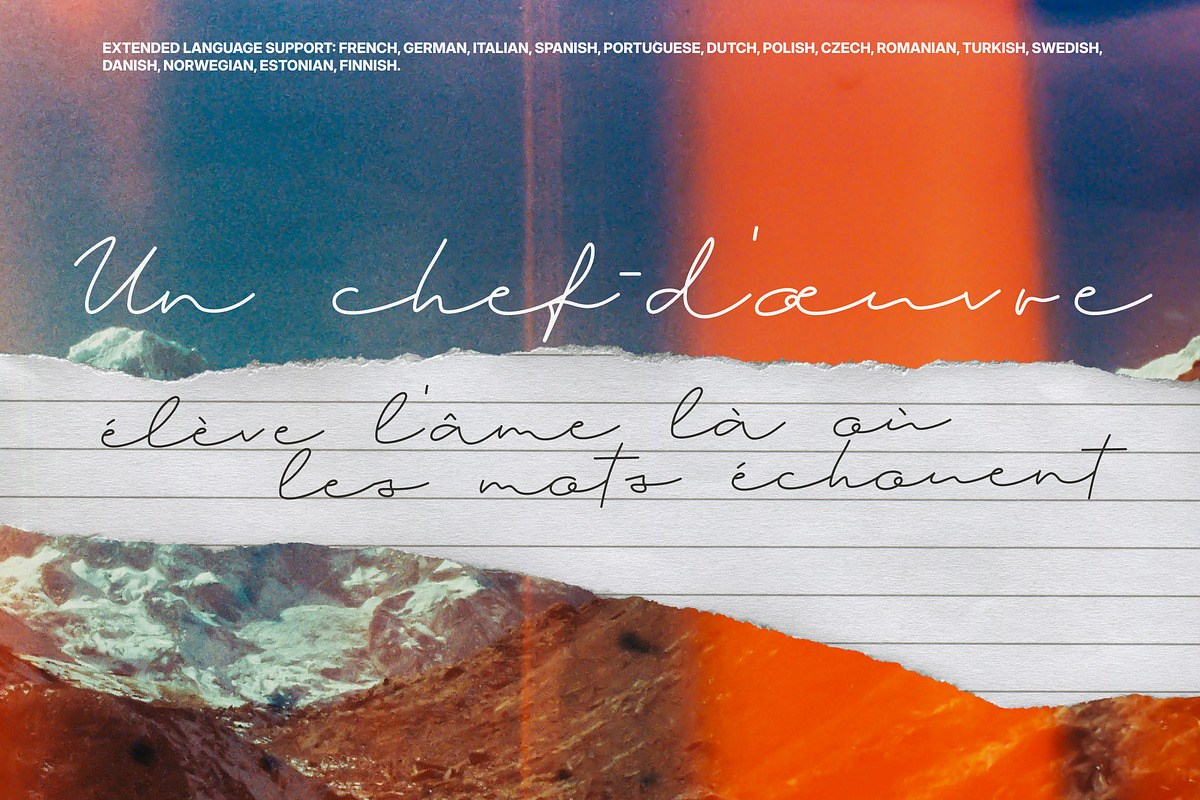 EXTENDED LANGUAGE SUPPORT: FRENCH, GERMAN, ITALIAN, SPANISH, PORTUGUESE, DUTCH, POLISH, CZECH, ROMANIAN, TURKISH, SWEDISH,
DANISH, NORWEGIAN, ESTONIAN, FINNISH.
Un chef-d'œuvre
élève l'âme là où
les mots échouent